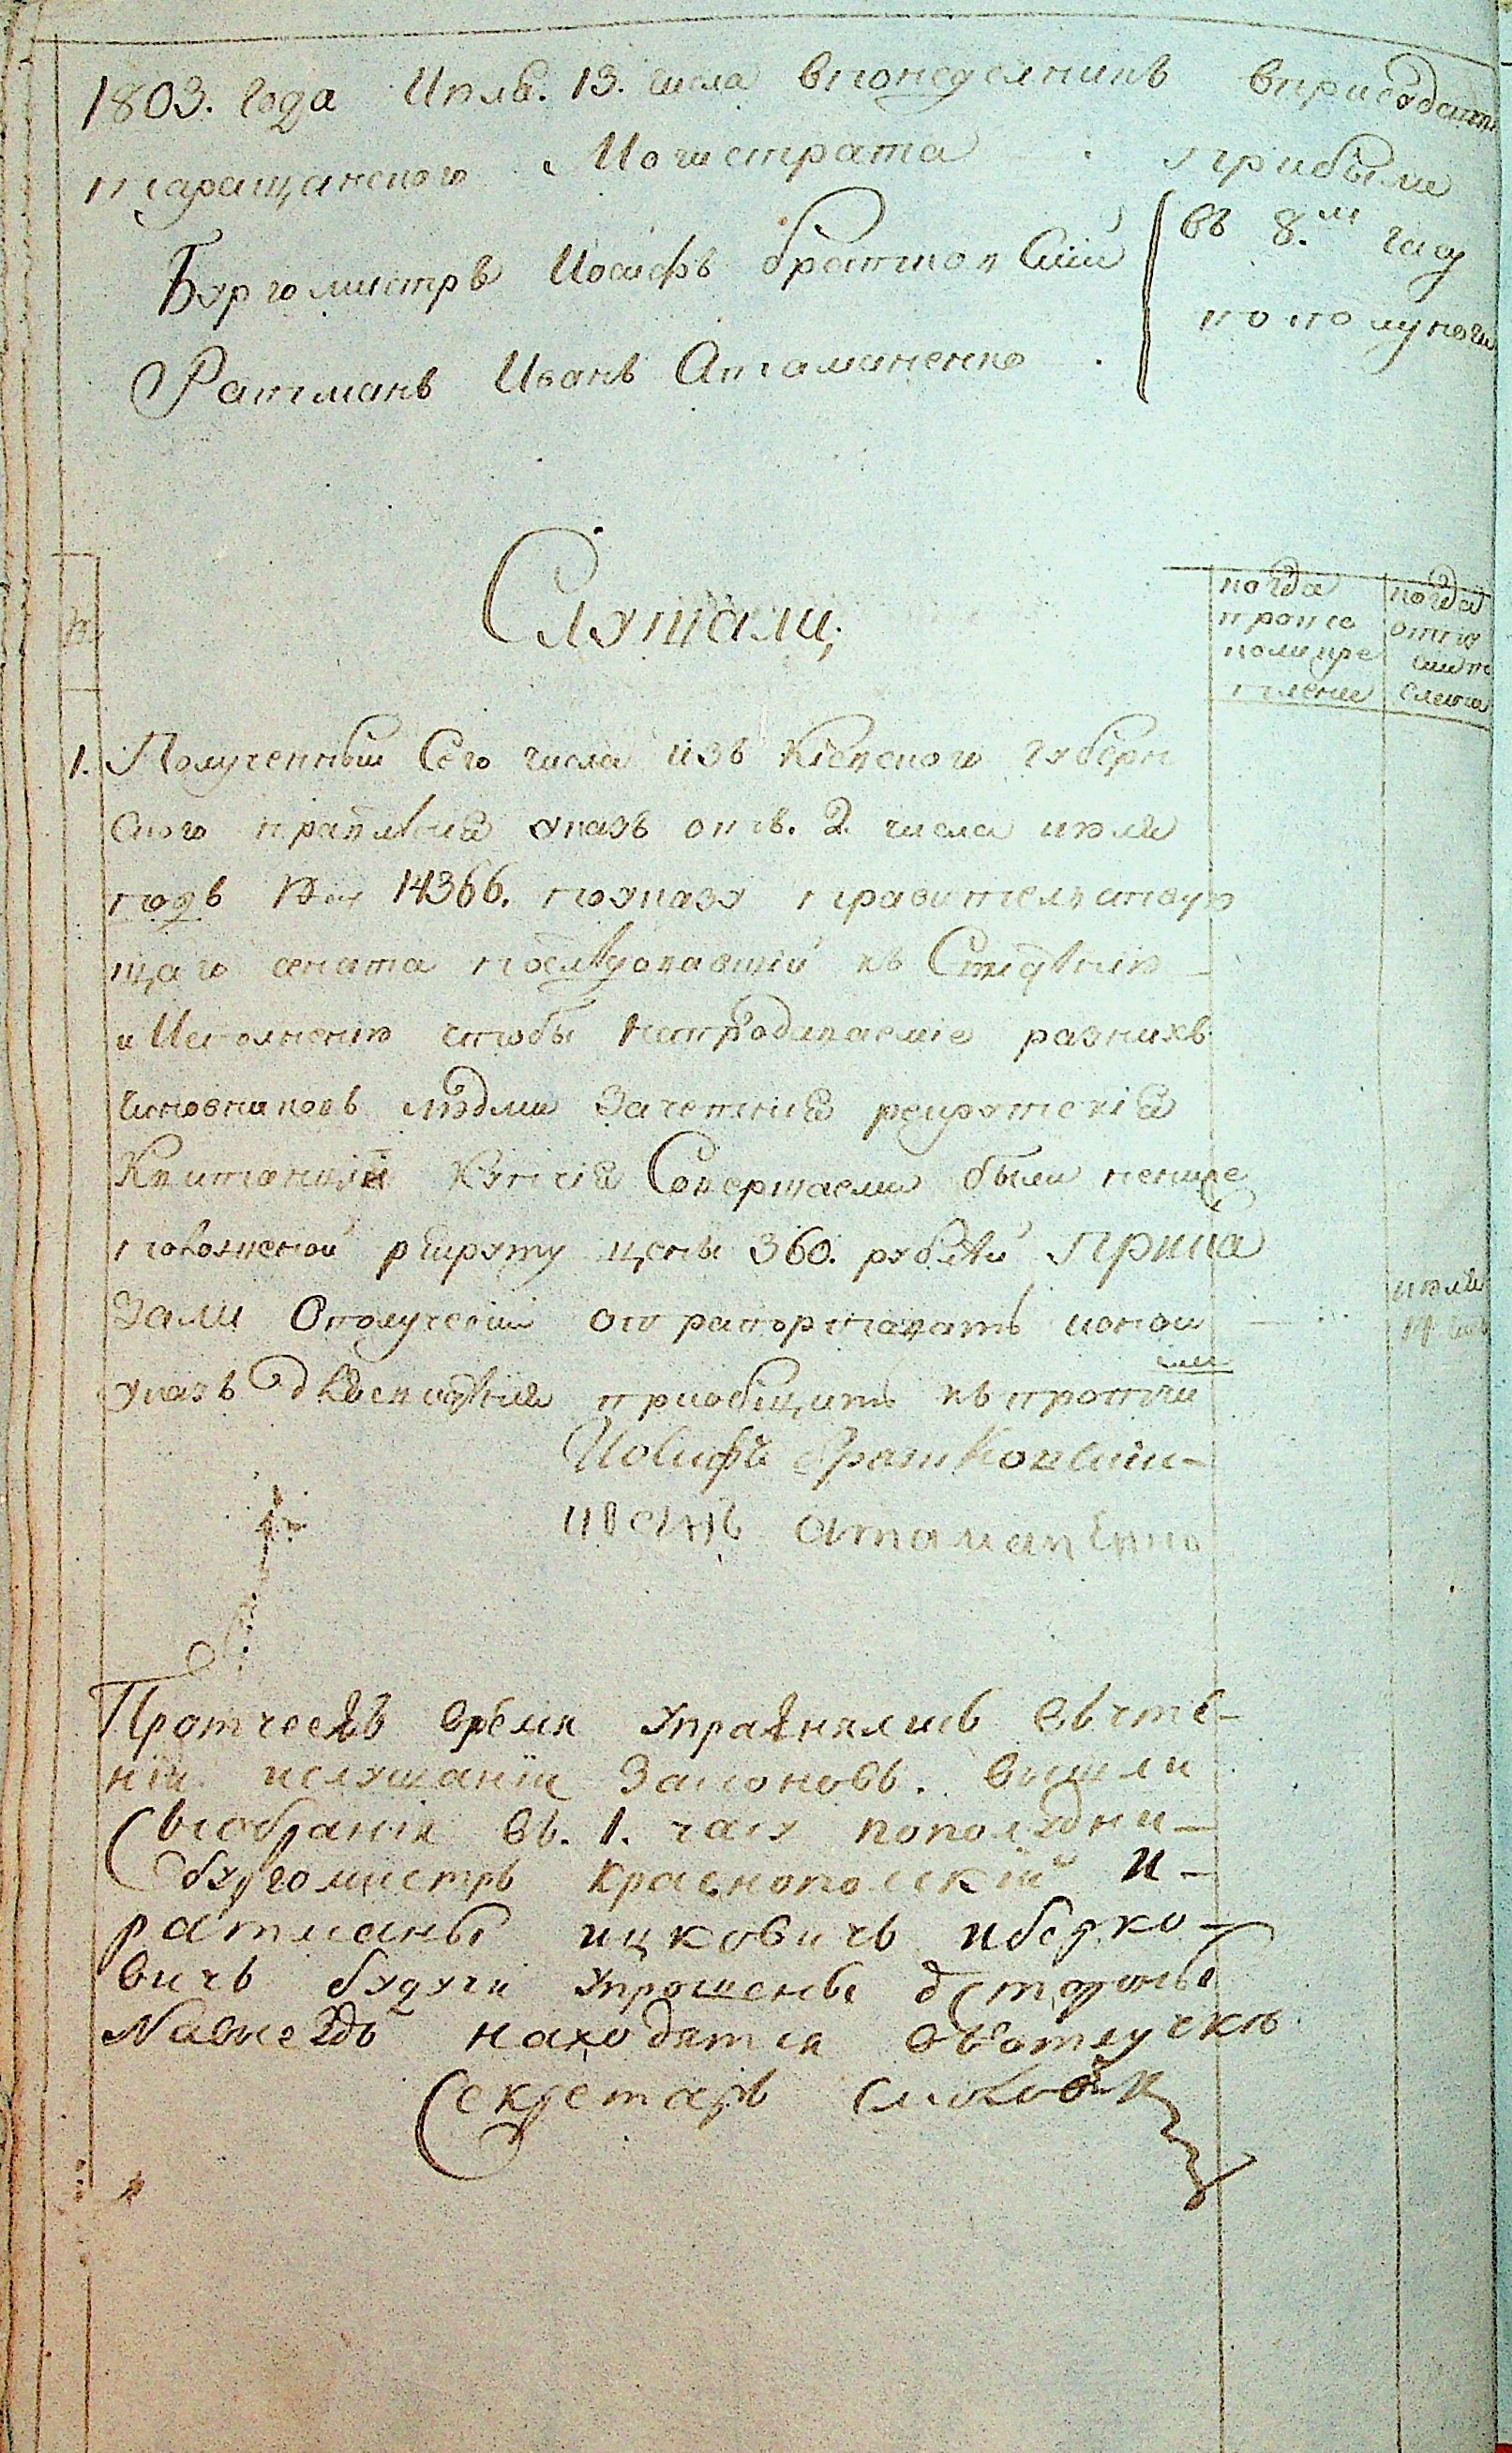 1803. года Июля. 13. числа впонеделникъ вприсудстви
таращанского Магистрата прибыли
Бургомистръ Иосифъ братковский въ 8.м часу
Ратманъ Иванъ Атаманенко. пополуночи
Слушали;
№
когда протоколи крепление
когда отписанно сленно
1. Полученный Сего числа изъ Киевского губерн
ского правления указъ отъ. 2. числа июля
подъ №м 14366. поуказу правителствую
щаго сената последовавший къ Сведению
и Исполнению чтобы напродаваемие разнихъ
Чиновниковъ людми Зачетния рекрутския
Квитанции Купчия Совершаеми были нениже
положеной рекруту цены 360. рублей Прика
зали Ополучении его рапортовать ионой
указъ къ протчим приобщить
Иосифъ Братковский
иванъ атаманенко
июля
Протчеежъ время упражнялись въчте-
нии ислушании Законовъ. вышли
съсобрания въ. 1. часу пополудни-
бургомистръ краснополский и-
ратманы ицковичъ ибедко-
вичъ будучи упрошены
Навыездъ находятся въотлучке
Секретарь